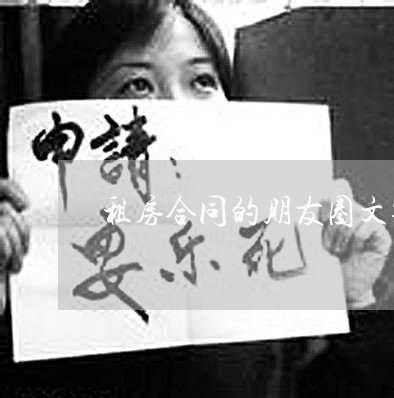 申請：
租房合同的朋友圈文
安乐死